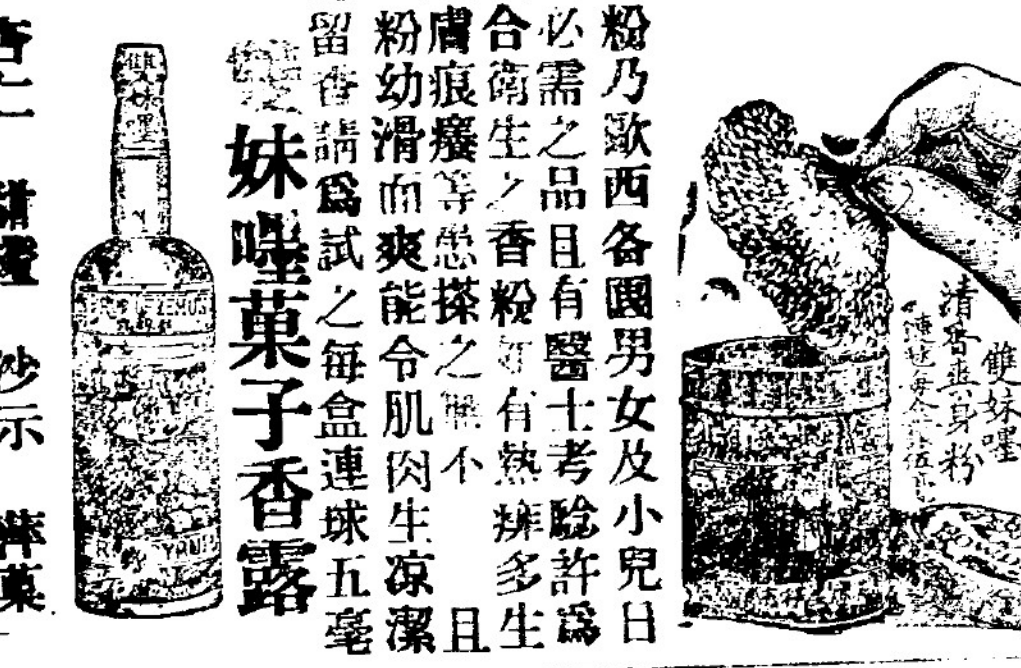 雙妹嘜
清香爽身粉
連毬每盒伍
粉乃歐西各國男女及小兒日
必需之品且有醫士考驗許爲
合衛生之香粉如有熱痱多生
膚痕癢等患搽之無不且
粉幼滑而爽能令肌肉生凉潔
留香請爲試之每盒連球五毫
雙妹嘜菓子香露
雙妹嘜
杏仁 沙示